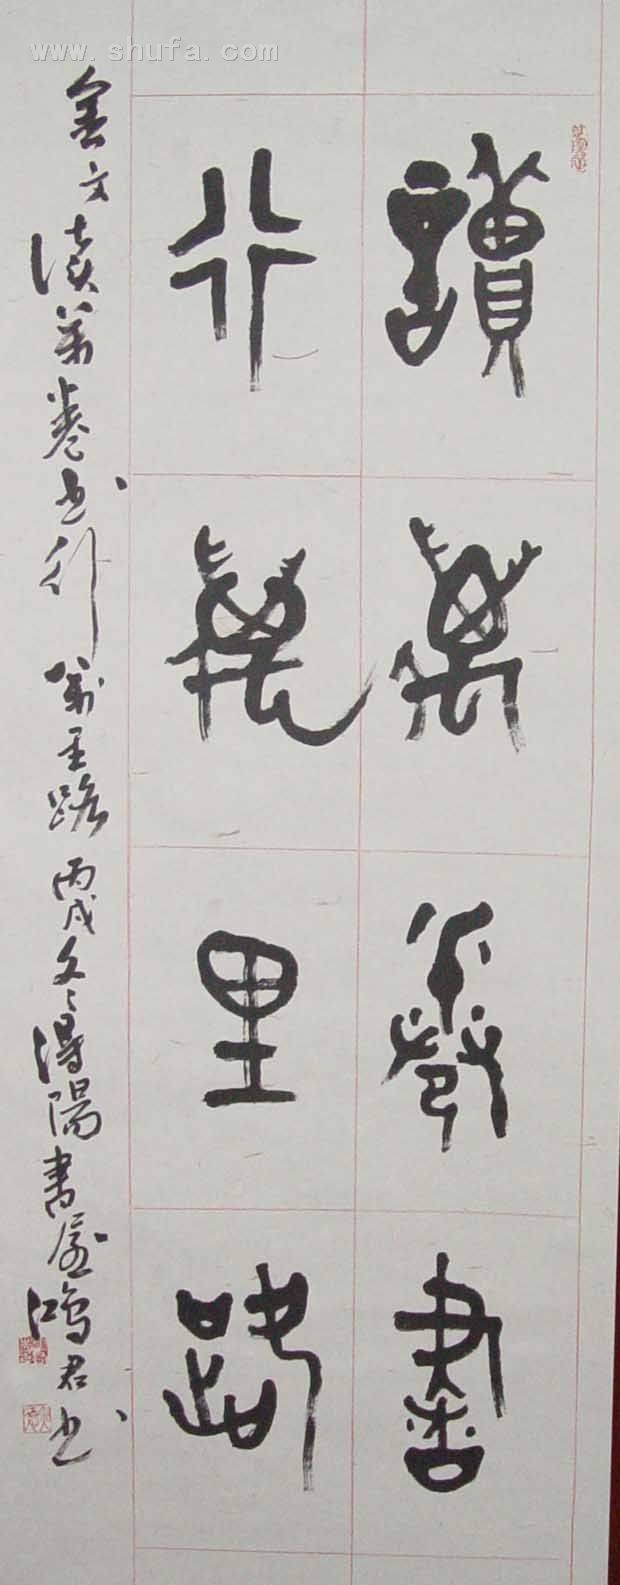 www.shufa.com
讀萬卷書
行萬里路
金文读万卷书行万里路丙戌冬冬浔陽書屋鸿君书